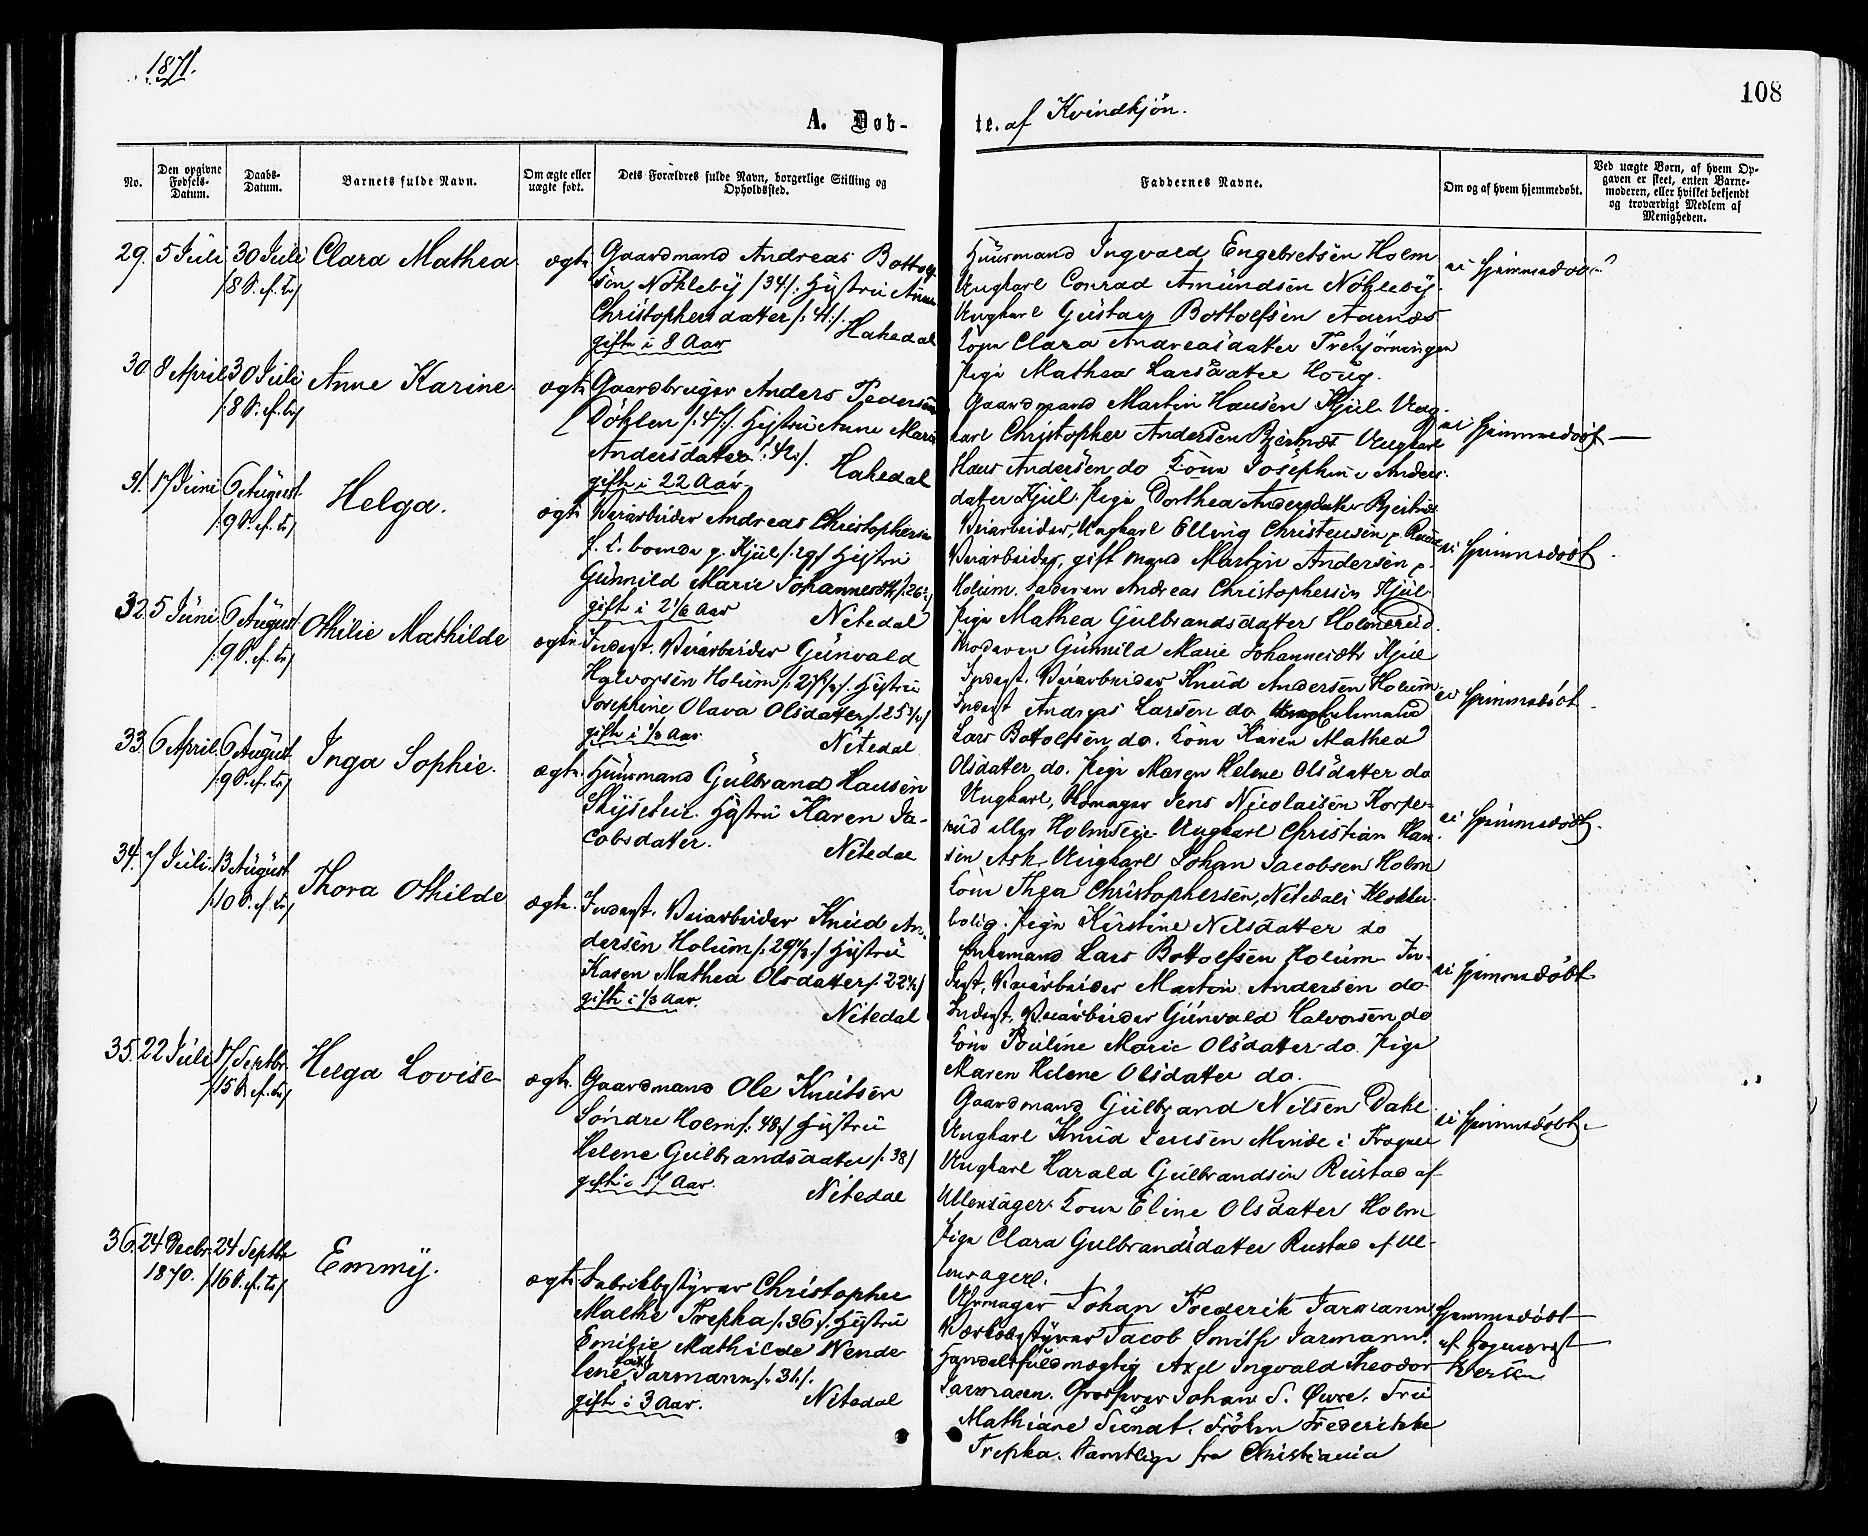 1871.
108
A. Døb-
te. af Kvindkjön.
No.
Den opgivne Fødsels-Datum.
Daabs-Datum.
Barnets fulde Navn.
Om ægte eller uægte født.
Dets Forældres fulde Navn, borgerlige Stilling og Opholdssted.
Faddernes Navne.
Om og af hvem hjemmedøbt.
Ved uægte Børn, af hvem Opgaven er skeet, enten Barnemoderen, eller hvilket bekjendt og troværdigt Medlem af Menigheden.
29. 5 Juli 30 Juli Clara Mathea ægte
/8 S. ef. Tr/
Gaardmand Andreas Bottolf-
sen Nökleby /34/: Hustru Anne
Christophersdatter /: 41:/.
gifte i 8 Aar Hakedal
Huusmand Ingvald Engebretsen Holm
Ungkarl Conrad Amundsen Nökleby
Ungkarl Gustav Bottolfsen Aarnæs
Kone Clara Andreasdatter
Pige Mathea Larsdatter Houg.
ei hjemmedöbt
30 8 April 30 Juli Anne Karine ægte
/:8 S. ef. Tr/
Gaardbruger Anders Pedersen
Döhlen /: 47:/ Hustru Anne Marie
Andersdatter /: 42:/.
gifte i 22 Aar. Hakedal
Gaardmand Martin Hansen Kjul. Ung-
karl Christopher Andersen Ungkarl
Hans Andersen do Kone Josephine Anders-
datter Kjul. Pige Dorthea Andersdatter
ei hjemmedöbt
31. 17 Juni 6 August Helga. ægte
/:9 S. ef. Tr/
Veiarbeider Andreas Christophersen
f. t. boende p. Kjul /: 29/ Hustru
Gunnild Marie Johannesdtr /: 26:/
gifte i 2 1/6 Aar Nitedal
Veiarbeider, Ungkarl Elling Christensen p.
Veiarbeider, gift Mand Martin Andersen p.
Holum. Faderen Andreas Christophersen Kjul
Pige Mathea Gulbrandsdatter Holmerud.
Moderen Gunnild Marie Johannesdtr Kjul
ei hjemmedöbt
32. 5 Juni 6 August Othilie Mathilde ægte
/:9 S. ef. Tr/
Inderst. Veiarbeider Gunvald
Halvorsen Holum /: 27 /. Hustru
Josephine Olava Olsdatter /: 25 /
gifte i Aar. Nitedal
Inderst. Veiarbeider Knud Andersen Holum
Inderst Andreas Larsen do Enkemand
Lars Bottolfsen do. Kone Karen Mathea
Olsdatter do. Pige Maren Helene Olsdatter do
ei hjemmedöbt
33. 6 April 6 August Inga Sophie. ægte
/:9 S. ef. Tr/
Huusmand Gulbrand Hansen
Skyset. Hustru Karen Ja-
cobsdatter. Nitedal
Ungkarl, Uhrmager Jens Nicolaisen Korpe-
rud Holmseie. Ungkarl Christian Han-
sen Ask Ungkarl Johan Jacobsen Holm
Kone Thea Christophersen, Nitedals Klokker-
bolig. Pige Kirstine Nilsdatter do
ei hjemmedöbt.
34. 7 Juli. 13 August Thora Othilde ægte.
/:10 S. ef. Tr/
Inderst. Veiarbeider Knud An-
dersen Holum /: 29 / Hustru
Karen Mathea Olsdatter /: 22 /
gifte i 1/3 Aar. Nitedal
Enkemand Lars Bottolfsen Holum In-
derst, Veiarbeider Martin Andersen do
Inderst, Veiarbeider Gunvald Halvorsen do
Kone Pauline Marie Olsdatter do. Pige
Maren Helene Olsdatter do.
ei hjemmedöbt
35. 22 Juli 17 Septbr. Helga Lovise ægte.
/15 S. ef. Tr/
Gaardmand Ole Knutsen
Söndre Holm /: 48:/ Hustru
Helene Gulbrandsdatter /: 38/
gifte i 17 Aar. Nitedal
Gaardmand Gulbrand Nilsen Dahl
Ungkarl Knud Jensen Minde i Frogner
Ungkarl Harald Gulbrandsen Rustad af
Ullensager. Kone Eline Olsdatter Holm
Pige Clara Gulbrandsdatter Rustad af Ul-
lensager.
ei hjemmedöbt.
36. 24 Decbr. 24 Septbr Emmy. ægte
1870. /16 S. ef. Tr/
Fabrikbestyrer Christopher
Malthe Trepka /: 36:/. Hustru
Emilie Mathilde Wende
lene født Jarmann /: 31:/.
gifte i 3 Aar. Nitedal
Uhrmager Johan Frederik Jarmann
Værksbestyrer Jacob Smith Jarmann.
Handelsfuldmægtig Axel Ingvald Theodor
Jarmann. Grosserer Johan S. Øwre. Fru
Mathiane Sundt. Fröken Frederikke
Trepka. Samtlige fra Christiania
Hjemmedöbt
af
Iversen